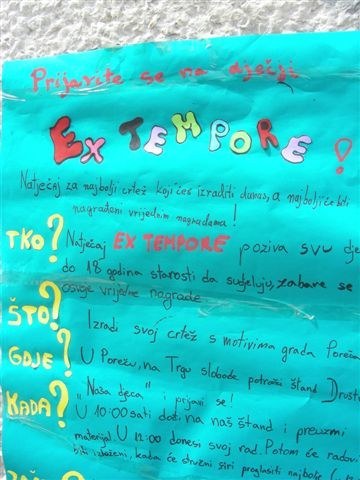 Prijavite se na dječji
EX TEMPORE !
Natječaj za najbolji crtež koji ćeš izraditi danas, a najbolji će biti
nagrađeni vrijednim nagradama !
TKO? Natječaj EX TEMPORE poziva svu dje
do 18 godina starosti da sudjeluju, zabave se
osvoje vrijedne nagrade
ŠTO? Izradi svoj crtež s motivima grada Poreča
GDJE? U Poreču, na Trgu slobode potraži štand Društ
„Naša djeca" i prijavi se!
KADA? U 10:00 sati dođi na naš štand i preuzmi
materijal. U 12:00 donesi svoj rad. Potom će radovi
biti izloženi, kada će stručni žiri proglasiti najbolje